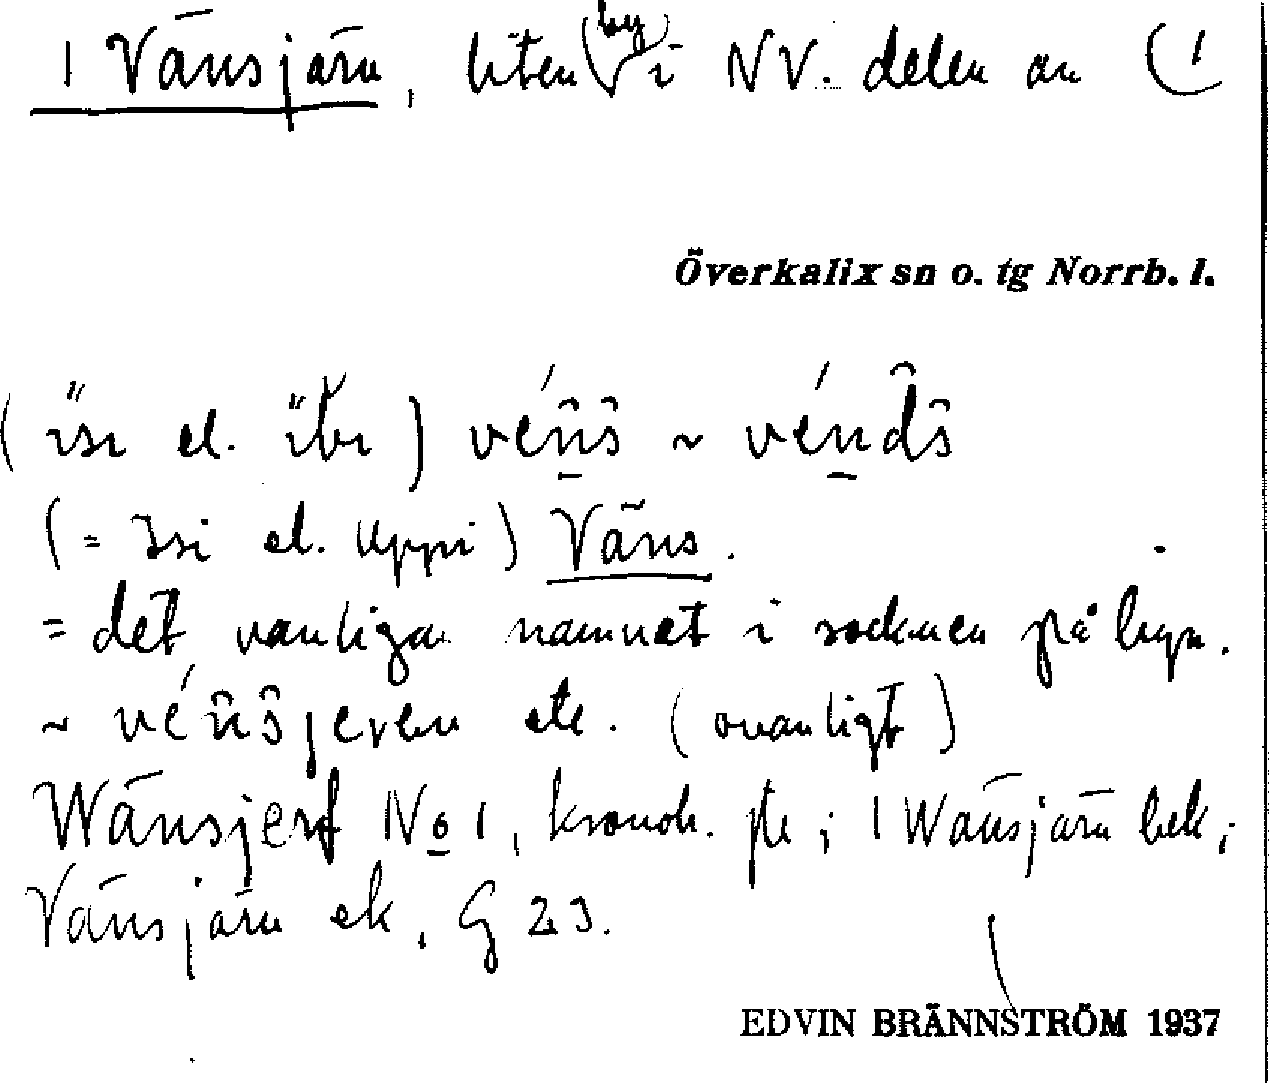 1 Vänsjärv, liten by i NV. delen av (1
Överkalix sn o. tg Norrb. l.
el. ) ~
(= Isi el. Uppi) Väns.
= det vanliga namnet i socknen på byn.
~ etc. (ovanligt)
Wänsjerf No 1, kronoh. jb; 1 Wänsjärv bek;
Vänsjärv ek, G 23.
EDVIN BRÄNNSTRÖM 1937